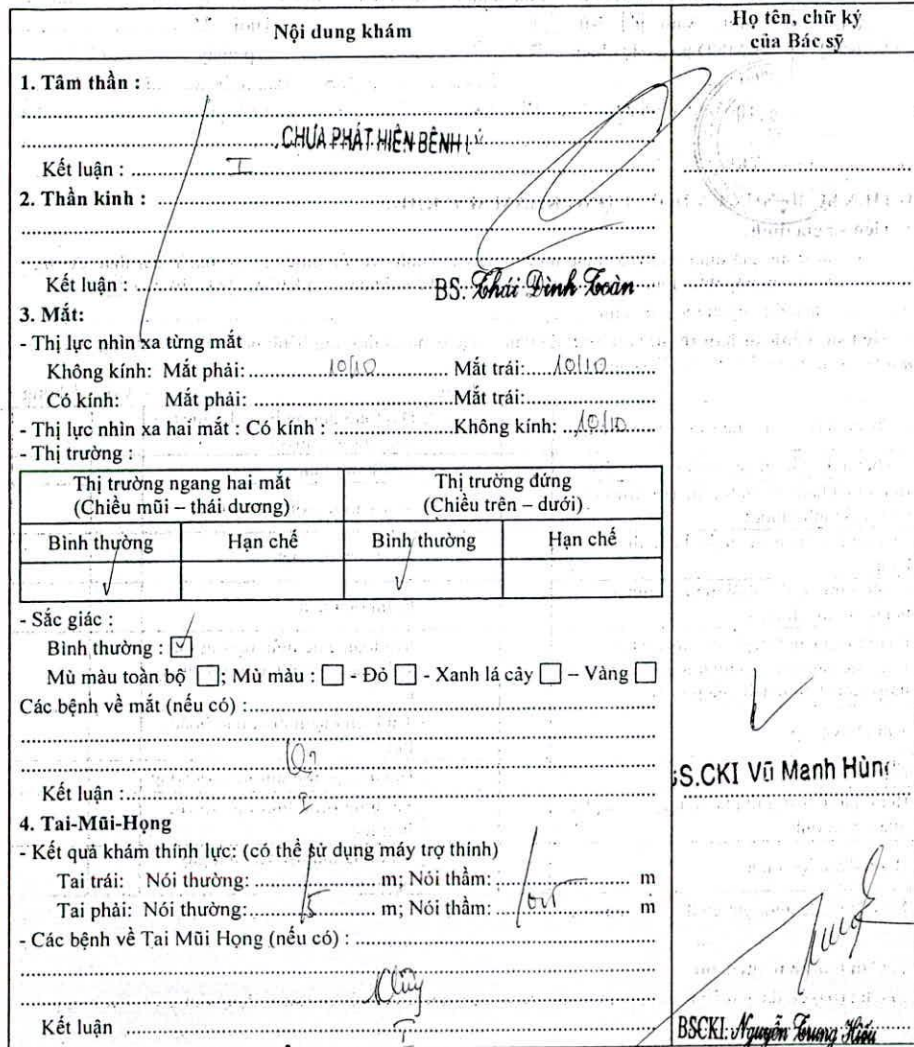 Nội dung khám
Họ tên, chữ ký
của Bác sỹ
1. Tâm thần :
CHƯA PHÁT HIỆN BỆNH LÝ
Kết luận : I
2. Thần kinh :
Kết luận :
BS. Thái Đình Toàn
3. Mắt:
- Thị lực nhìn xa từng mắt
Không kính: Mắt phải: 10/10 Mắt trái: 10/10
Có kính: Mắt phải: Mắt trái:
- Thị lực nhìn xa hai mắt : Có kính : Không kính: 10/10
- Thị trường :
Thị trường ngang hai mắt
(Chiều mũi – thái dương)
Thị trường đứng
(Chiều trên – dưới)
Bình thường Hạn chế Bình thường Hạn chế
- Sắc giác :
Bình thường :
Mù màu toàn bộ ; Mù màu : - Đỏ - Xanh lá cây – Vàng
Các bệnh về mắt (nếu có) :
Kết luận : I
BS.CKI Vũ Mạnh Hùng
4. Tai-Mũi-Họng
- Kết quả khám thính lực: (có thể sử dụng máy trợ thính)
Tai trái: Nói thường: m; Nói thầm: m
Tai phải: Nói thường: 5 m; Nói thầm: 0,5 m
- Các bệnh về Tai Mũi Họng (nếu có) :
Kết luận I
BSCKI. Nguyễn Trung Hiếu